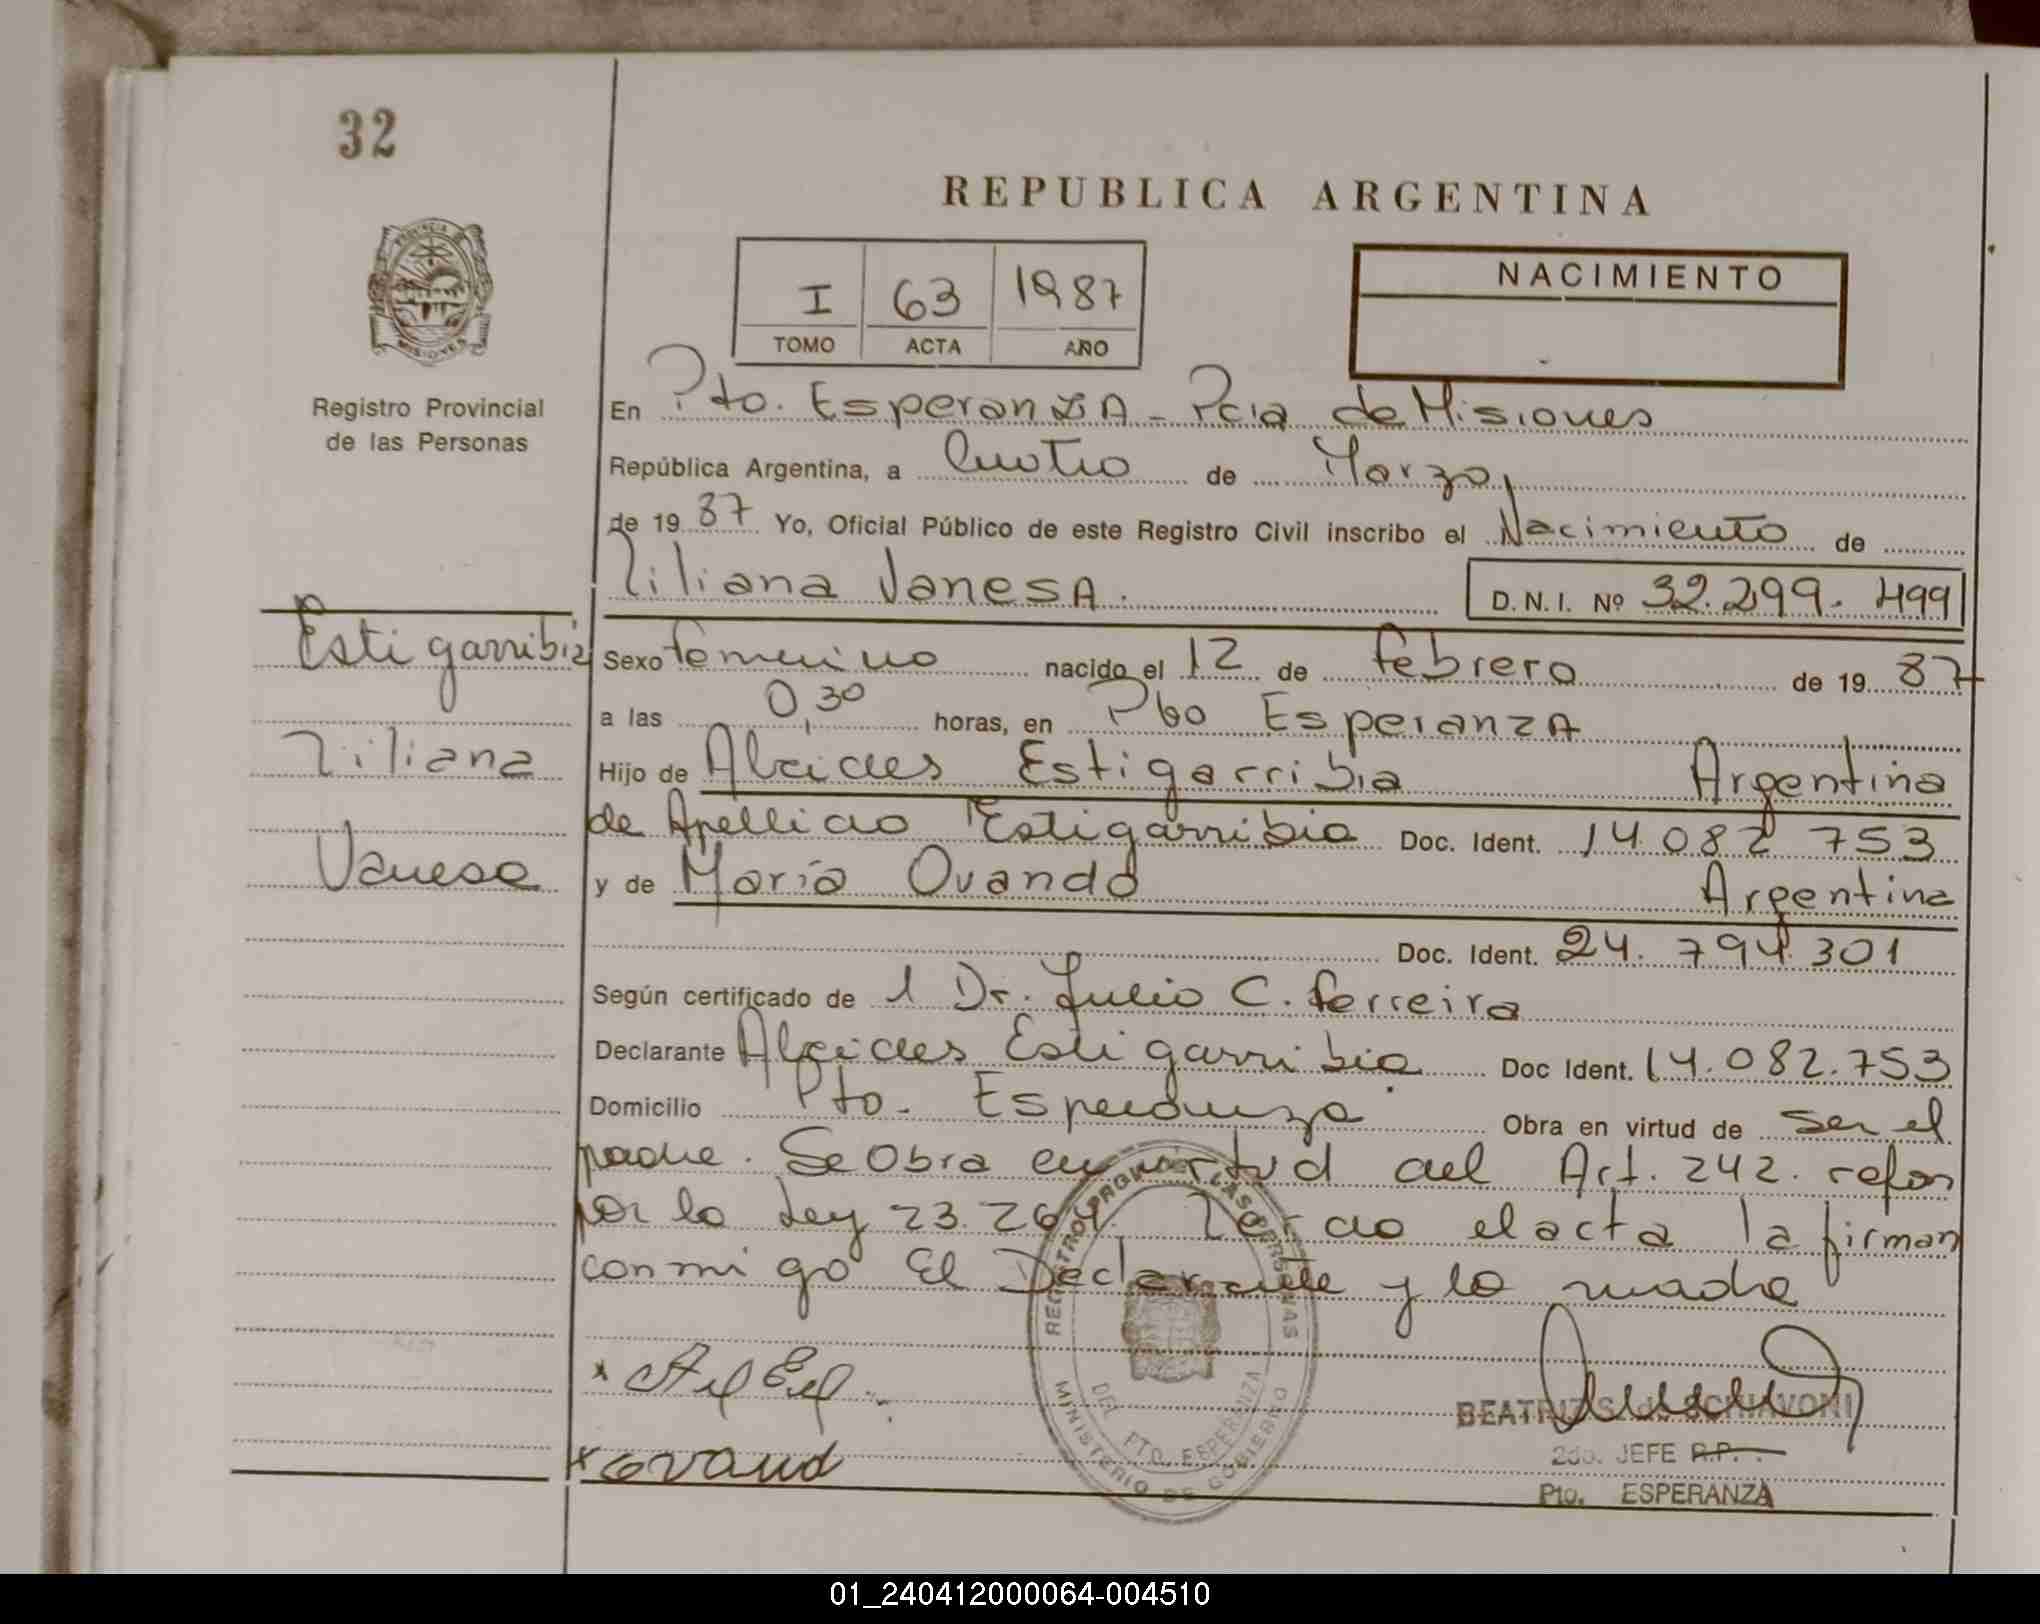 32
REPUBLICA ARGENTINA
PROVINCIA DE
MISIONES
Registro Provincial
de las Personas
I 63 1987
TOMO ACTA AÑO
NACIMIENTO
En Pto. EsperanzA - Pcia de Misiones
República Argentina, a Cuatro de Marzo,
de 19 87 Yo, Oficial Público de este Registro Civil inscribo el Nacimiento de
Liliana VanesA.
D.N.I. Nº 32.299.499
Estigarribia
Liliana
Vanesa
Sexo femenino nacido el 12 de febrero de 19 87
a las 0,30 horas, en Pto EsperanzA
Hijo de Alcides Estigarribia Argentina
de Apellido Estigarribia Doc. Ident. 14.082 753
y de María Ovando Argentina
Doc. Ident. 24.794.301
Según certificado de 1 Dr. Julio C. Ferreira
Declarante Alcides Estigarribia Doc Ident. 14.082.753
Domicilio Pto. Esperanza Obra en virtud de ser el
padre. Se Obra en virtud del Art. 242. refor
por la Ley 23.264. Leido el acta la firman
conmigo El Declarante y la madre
REGISTRO PROVINCIAL DE LAS PERSONAS
DEL PTO. ESPERANZA
MINISTERIO DE GOBIERNO
x ovand
BEATRIZ S. de SCHIAVONI
2do. JEFE R.P.
Pto. ESPERANZA
01_240412000064-004510